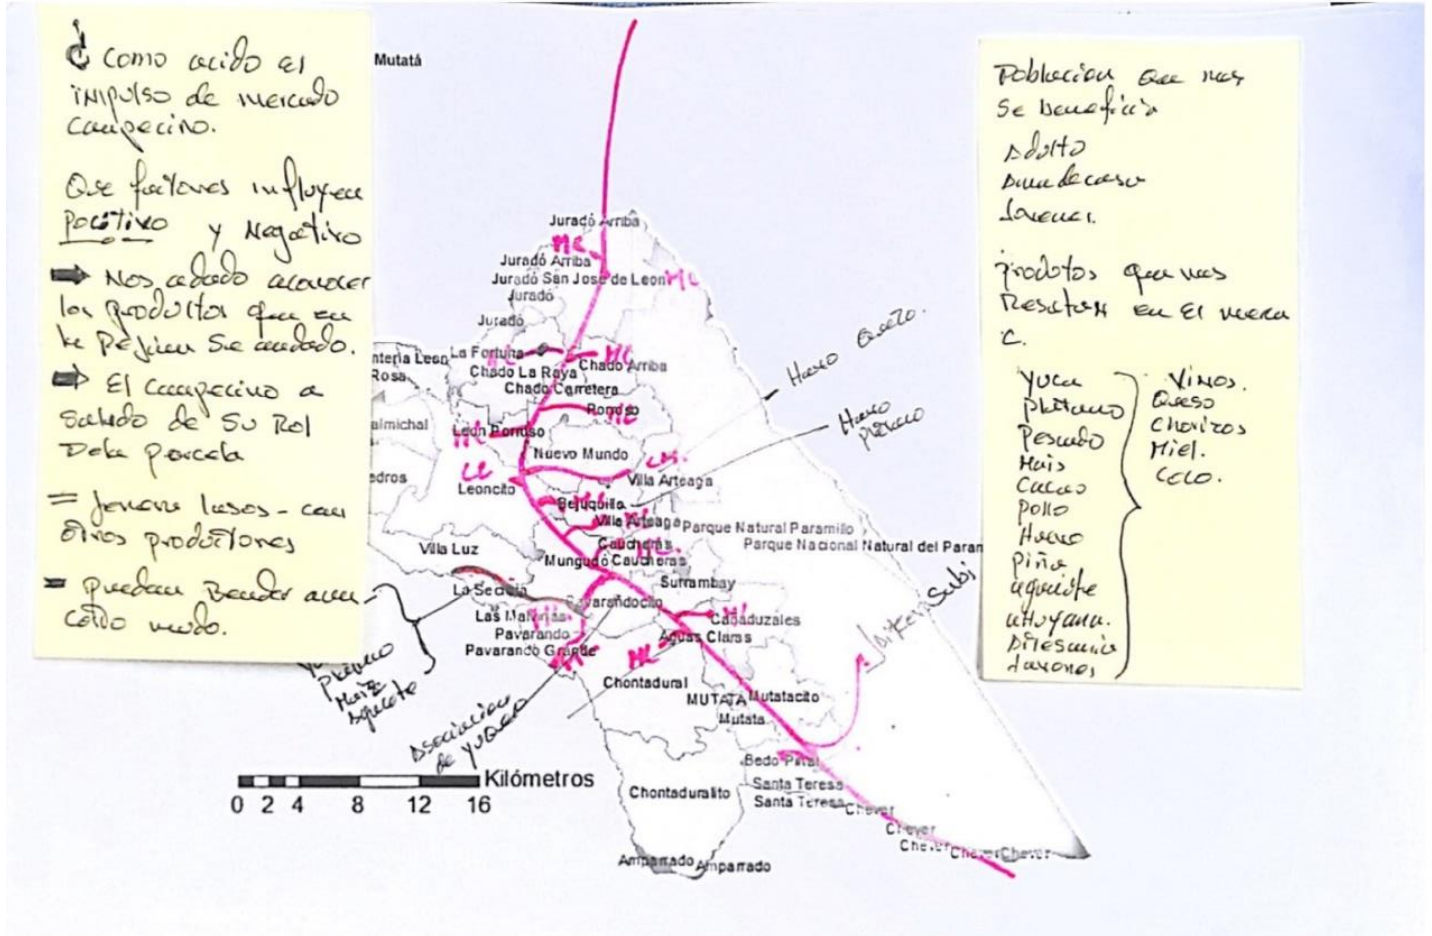 ¿ Como acido el
impulso de mercado
campecino.
Que factores influyen
pocitivo y Negativo
➡ Nos adado aconocer
los productos que en
la Rejion Se andado.
➡ El campecino a
Salido de Su Rol
Dela parcela
= jenerar lasos - con
otros productores
= pueden Bender aun
presio justo.
Mutatá
Juradó Arriba
MC
Juradó Arriba
Juradó San Jose de Leon MC
Jurado
Jurado
ntería Leon
La Fortuna
MC
Rosa
Chado Arriba
Chado La Raya
Chado Carretera
Porroso
MC
almichal
León Porroso
MC
Nuevo Mundo
edros
Leoncito
Villa Arteaga
Bejuquillo
Villa Arteaga
Parque Natural Paramillo
Caucheras
Parque Nacional Natural del Paran
Villa Luz
Mungudó Caucheras
Surrambay
La Secreta
Pavarandocito
Las Malvinas
Cañaduzales
Pavarando
Aguas Claras
Pavarando Grande
MC
Chontadural
MUTATA Mutatacito
Mutata
Bedo Piñal
Santa Teresa
Santa Teresa Chever
Chontaduralito
Chever
Chever Chever Chever
Amparrado Amparrado
Kilómetros
0 2 4 8 12 16
Platano
Maiz
Aguacate
Asociacion
de yuquer
Poblacion que mas
Se beneficia
Adulto
Ama de casa
Jovenes.
produtos que mas
Resaltan en El merca
C.
Yuca
Platano
Pescado
Mais
Cacao
pollo
Huevo
piña
aguacate
ahuyama.
Artesania
Vinos.
Queso
Chorizos
Miel.
Coco.